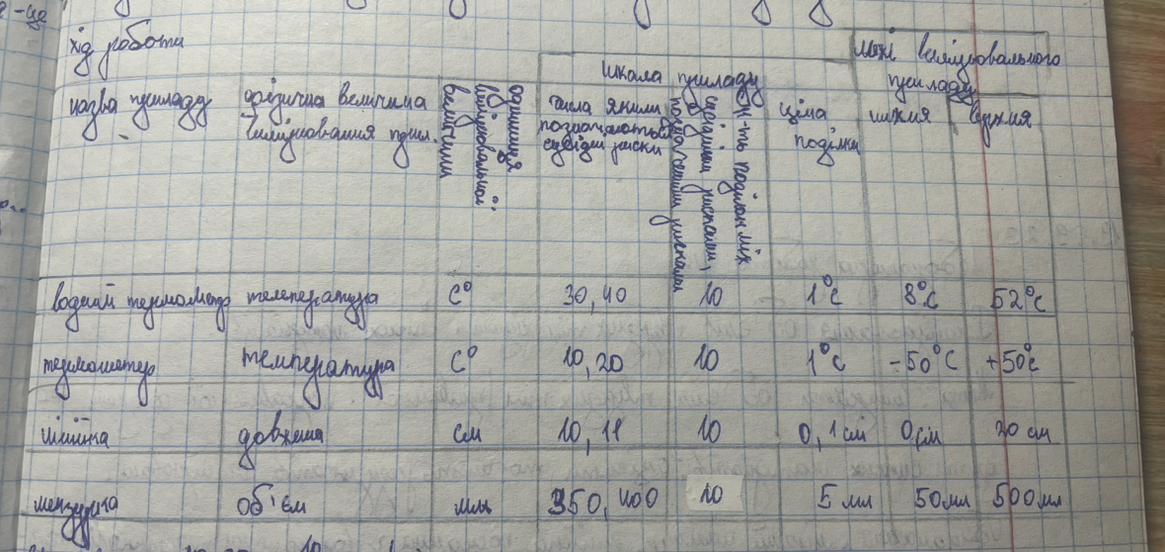 хід роботи
назва приладу
фізична величина
вимірювання прил.
одиниця
вимірювальної
величини
шкала приладу
числа якими
позначаються
сусідні риски
к-ть поділок між
сусідніми рисками,
позначеними рисками
ціна
поділки
межі вимірювального
приладу
нижня
верхня
водний термометр температура С° 30, 40 10 1°С 8°С 52°С
термометр температура С° 10, 20 10 1°С -50°С +50°С
лінійка довжина см 10, 11 10 0,1 см 0 см 20 см
мензурка об'єм мл 350, 400 10 5 мл 50 мл 500 мл